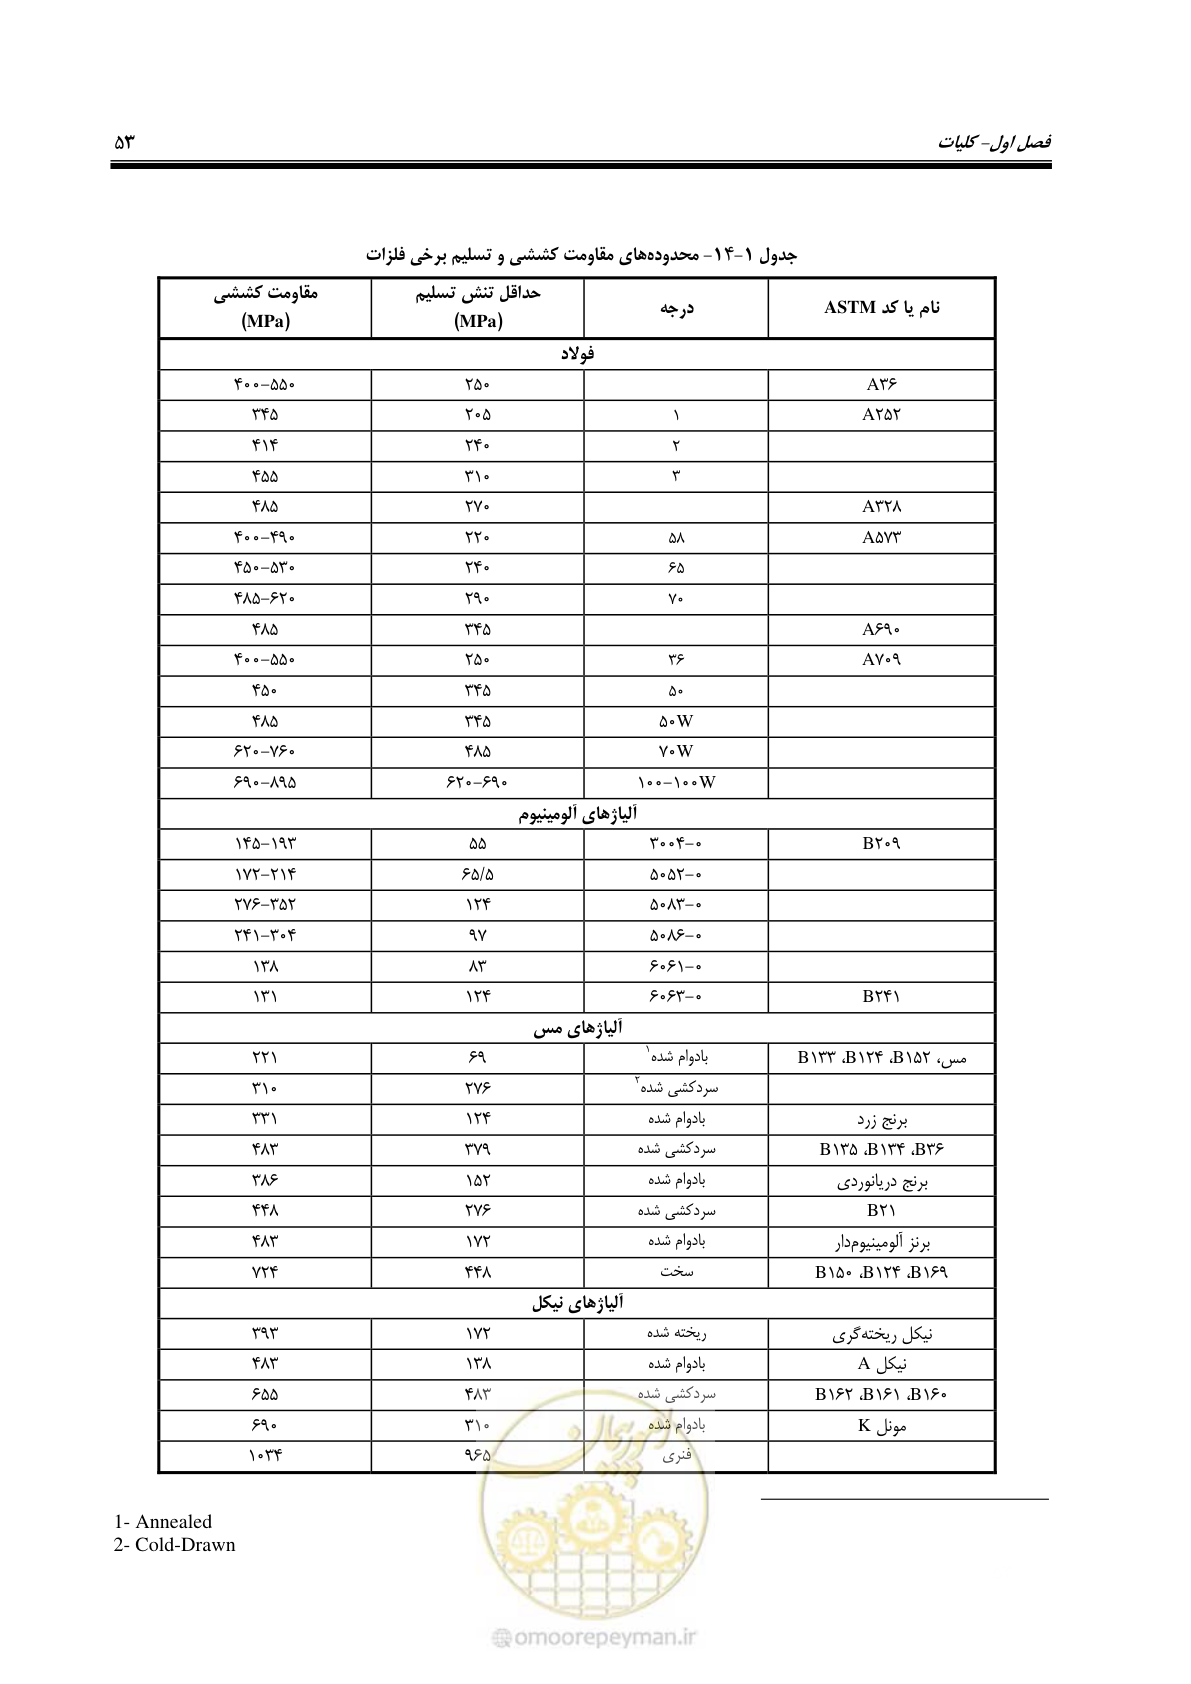 فصل اول– کلیات ۵۳
جدول ۱-۱۴- محدوده‌های مقاومت کششی و تسلیم برخی فلزات
نام یا کد ASTM درجه حداقل تنش تسلیم (MPa) مقاومت کششی (MPa)
فولاد
A۳۶ ۲۵۰ ۴۰۰–۵۵۰
A۲۵۲ ۱ ۲۰۵ ۳۴۵
۲ ۲۴۰ ۴۱۴
۳ ۳۱۰ ۴۵۵
A۳۲۸ ۲۷۰ ۴۸۵
A۵۷۳ ۵۸ ۲۲۰ ۴۰۰–۴۹۰
۶۵ ۲۴۰ ۴۵۰–۵۳۰
۷۰ ۲۹۰ ۴۸۵–۶۲۰
A۶۹۰ ۳۴۵ ۴۸۵
A۷۰۹ ۳۶ ۲۵۰ ۴۰۰–۵۵۰
۵۰ ۳۴۵ ۴۵۰
۵۰W ۳۴۵ ۴۸۵
۷۰W ۴۸۵ ۶۲۰–۷۶۰
۱۰۰–۱۰۰W ۶۲۰–۶۹۰ ۶۹۰–۸۹۵
آلیاژهای آلومینیوم
B۲۰۹ ۳۰۰۴–۰ ۵۵ ۱۴۵–۱۹۳
۵۰۵۲–۰ ۶۵/۵ ۱۷۲–۲۱۴
۵۰۸۳–۰ ۱۲۴ ۲۷۶–۳۵۲
۵۰۸۶–۰ ۹۷ ۲۴۱–۳۰۴
۶۰۶۱–۰ ۸۳ ۱۳۸
B۲۴۱ ۶۰۶۳–۰ ۱۲۴ ۱۳۱
آلیاژهای مس
مس، B۱۵۲، B۱۲۴، B۱۳۳ بادوام شده۱ ۶۹ ۲۲۱
سردکشی شده۲ ۲۷۶ ۳۱۰
برنج زرد بادوام شده ۱۲۴ ۳۳۱
B۳۶، B۱۳۴، B۱۳۵ سردکشی شده ۳۷۹ ۴۸۳
برنج دریانوردی بادوام شده ۱۵۲ ۳۸۶
B۲۱ سردکشی شده ۲۷۶ ۴۴۸
برنز آلومینیوم‌دار بادوام شده ۱۷۲ ۴۸۳
B۱۶۹، B۱۲۴، B۱۵۰ سخت ۴۴۸ ۷۲۴
آلیاژهای نیکل
نیکل ریخته‌گری ریخته شده ۱۷۲ ۳۹۳
نیکل A بادوام شده ۱۳۸ ۴۸۳
B۱۶۰، B۱۶۱، B۱۶۲ سردکشی شده ۴۸۳ ۶۵۵
مونل K بادوام شده ۳۱۰ ۶۹۰
فنری ۹۶۵ ۱۰۳۴
1- Annealed
2- Cold-Drawn
امور پیمان
omoorepeyman.ir